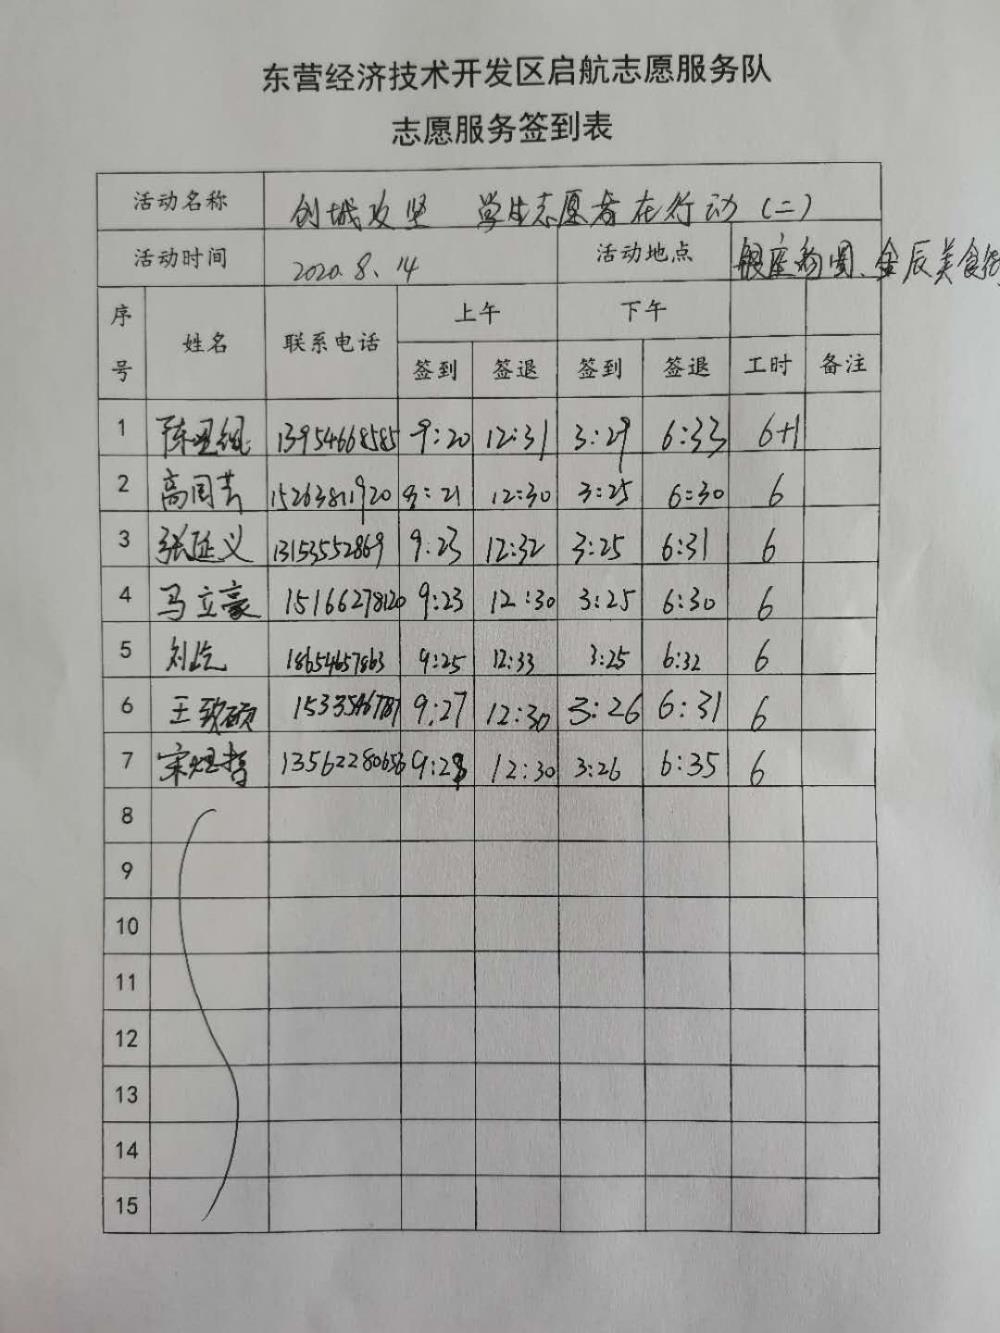 东营经济技术开发区启航志愿服务队
志愿服务签到表
活动名称 创城攻坚 学生志愿者在行动（二）
活动时间 2020.8.14 活动地点 银座 金辰美食街
序号 姓名 联系电话 上午 下午
签到 签退 签到 签退 工时 备注
1 13954668585 9:20 12:31 3:29 6:33 6+1
2 15263811920 12:30 3:25 6:30 6
3 张延义 13153552869 9:23 12:32 3:25 6:31 6
4 马立豪 15166278120 9:23 12:30 3:25 6:30 6
5 18654657863 9:25 12:33 3:25 6:32 6
6 王致硕 9:27 12:30 3:26 6:31 6
7 13562280656 9:28 12:30 3:26 6:35 6
8
9
10
11
12
13
14
15